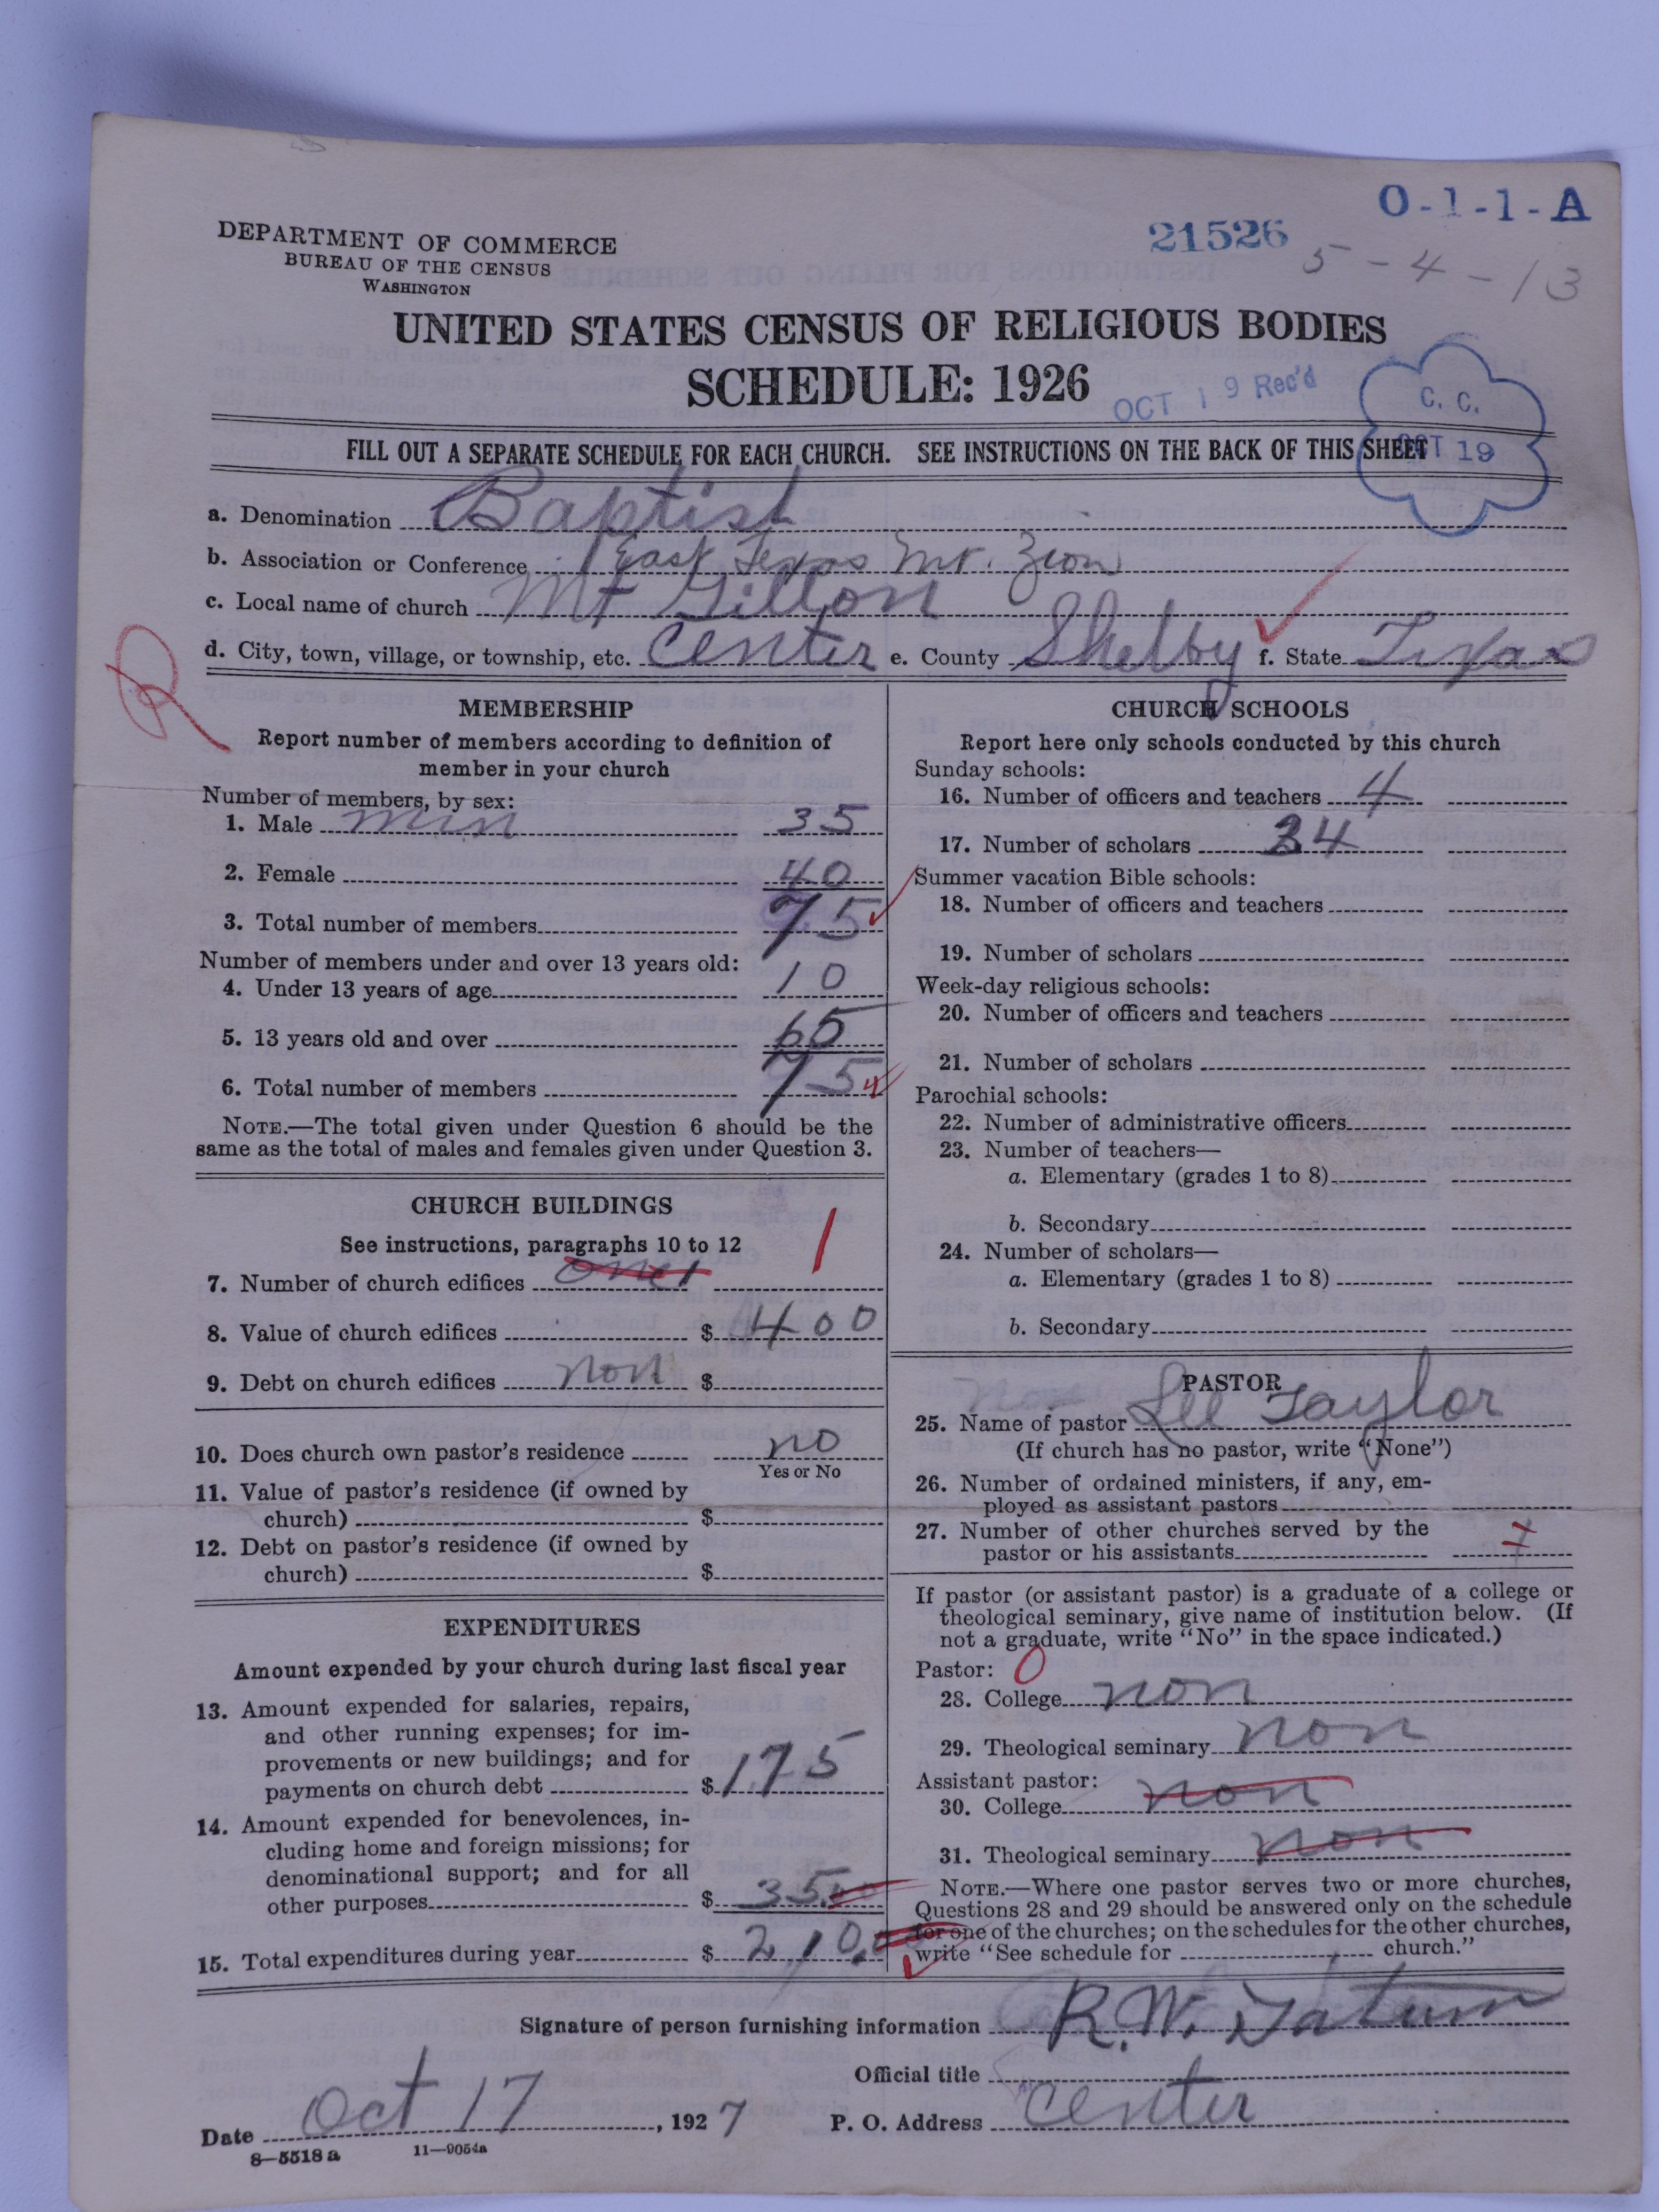 O-1-1-A
21526
5-4-13
DEPARTMENT OF COMMERCE
BUREAU OF THE CENSUS
WASHINGTON
UNITED STATES CENSUS OF RELIGIOUS BODIES
SCHEDULE: 1926
OCT 19 Rec'd
C. C.
OCT 19
FILL OUT A SEPARATE SCHEDULE FOR EACH CHURCH. SEE INSTRUCTIONS ON THE BACK OF THIS SHEET
a. Denomination Baptist
b. Association or Conference East Texas Mt. Zion
c. Local name of church Mt Gillon
d. City, town, village, or township, etc. Center e. County Shelby f. State Texas
MEMBERSHIP
Report number of members according to definition of
member in your church
Number of members, by sex:
1. Male min 35
2. Female 40
3. Total number of members 75
Number of members under and over 13 years old:
4. Under 13 years of age 10
5. 13 years old and over 65
6. Total number of members 75
NOTE.—The total given under Question 6 should be the
same as the total of males and females given under Question 3.
CHURCH BUILDINGS
See instructions, paragraphs 10 to 12
7. Number of church edifices one 1 1
8. Value of church edifices $ 400
9. Debt on church edifices non $
10. Does church own pastor's residence no
Yes or No
11. Value of pastor's residence (if owned by
church) $
12. Debt on pastor's residence (if owned by
church) $
EXPENDITURES
Amount expended by your church during last fiscal year
13. Amount expended for salaries, repairs,
and other running expenses; for im-
provements or new buildings; and for
payments on church debt $ 175
14. Amount expended for benevolences, in-
cluding home and foreign missions; for
denominational support; and for all
other purposes $ 35.00
15. Total expenditures during year $ 210.00
CHURCH SCHOOLS
Report here only schools conducted by this church
Sunday schools:
16. Number of officers and teachers 4
17. Number of scholars 34
Summer vacation Bible schools:
18. Number of officers and teachers
19. Number of scholars
Week-day religious schools:
20. Number of officers and teachers
21. Number of scholars
Parochial schools:
22. Number of administrative officers
23. Number of teachers—
a. Elementary (grades 1 to 8)
b. Secondary
24. Number of scholars—
a. Elementary (grades 1 to 8)
b. Secondary
PASTOR
25. Name of pastor Lee Taylor
(If church has no pastor, write "None")
26. Number of ordained ministers, if any, em-
ployed as assistant pastors
27. Number of other churches served by the
pastor or his assistants
If pastor (or assistant pastor) is a graduate of a college or
theological seminary, give name of institution below. (If
not a graduate, write "No" in the space indicated.)
Pastor: 0
28. College non
29. Theological seminary non
Assistant pastor:
30. College non
31. Theological seminary non
NOTE.—Where one pastor serves two or more churches,
Questions 28 and 29 should be answered only on the schedule
for one of the churches; on the schedules for the other churches,
write "See schedule for church."
Signature of person furnishing information R. W. Tatum
Official title
Date Oct 17, 1927 P. O. Address Center
8—5518 a 11—9054a